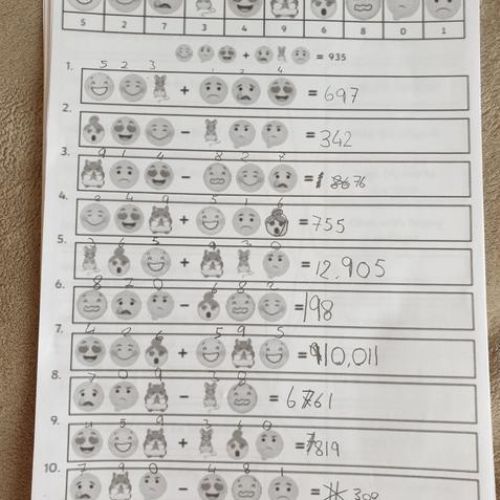 5 2 7 3 4 9 6 8 0 1
+ = 935
1.
5 2 3 1 7 4
+ = 697
2.
- = 342
3.
9 1 4 8 2 7
- = 8676
4.
2 4 9 5 1 6
+ = 755
5.
3 6 5 9 3 0
+ = 12,905
6.
8 7 0 6 8 2
- = 198
7.
4 2 6 5 9 5
+ = 10,011
8.
7 0 9 3 8
- = 6761
9.
4 5 9 3 6 0
+ = 7819
10.
7 9 0 4 8 1
- = 309